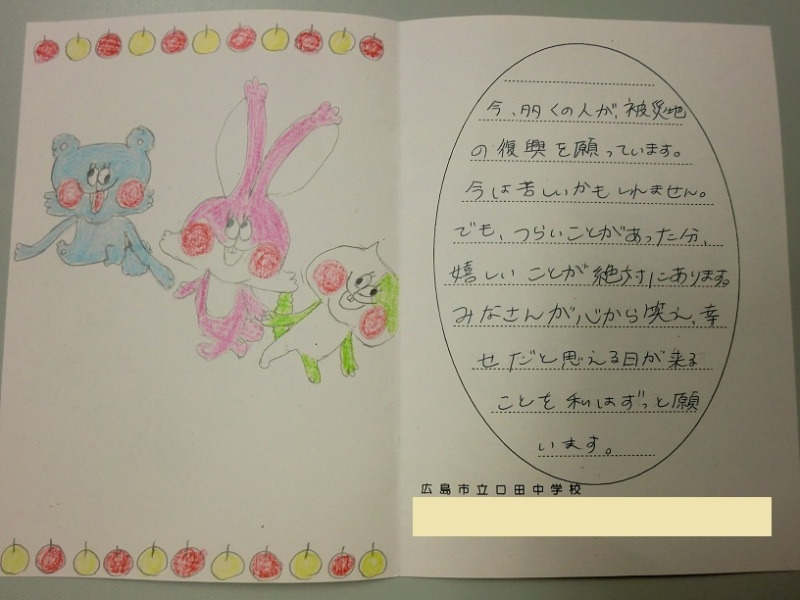 今、多くの人が、被災地
の復興を願っています。
今は苦しいかもしれません。
でも、つらいことがあった分、
嬉しいことが絶対にあります。
みなさんが心から笑え、幸
せだと思える日が来る
ことを私はずっと願
います。
広島市立口田中学校